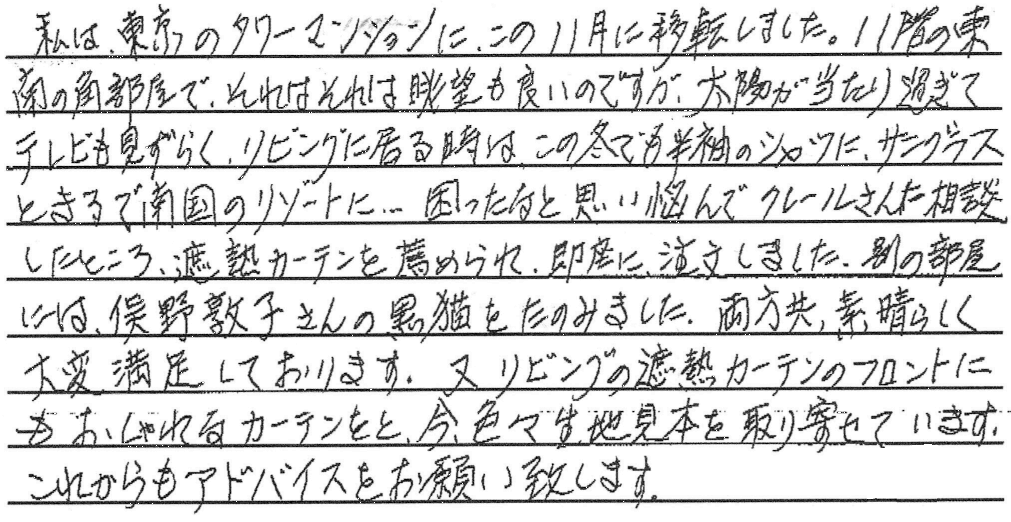 私は、東京のタワーマンションに、この11月に移転しました。11階の東
南の角部屋で、それはそれは眺望も良いのですが、太陽が当たり過ぎて
テレビも見ずらく、リビングに居る時は、この冬でも半袖のシャツに、サングラス
とまるで南国のリゾートに… 困ったなと思い悩んでクレールさんに相談
したところ、遮熱カーテンを薦められ、即座に、注文しました。別の部屋
には、俣野敦子さんの黒猫をたのみました。両方共、素晴らしく
大変満足しております。又リビングの遮熱カーテンのフロントに
もおしゃれなカーテンをと、今、色々生地見本を取り寄せています。
これからもアドバイスをお願い致します。